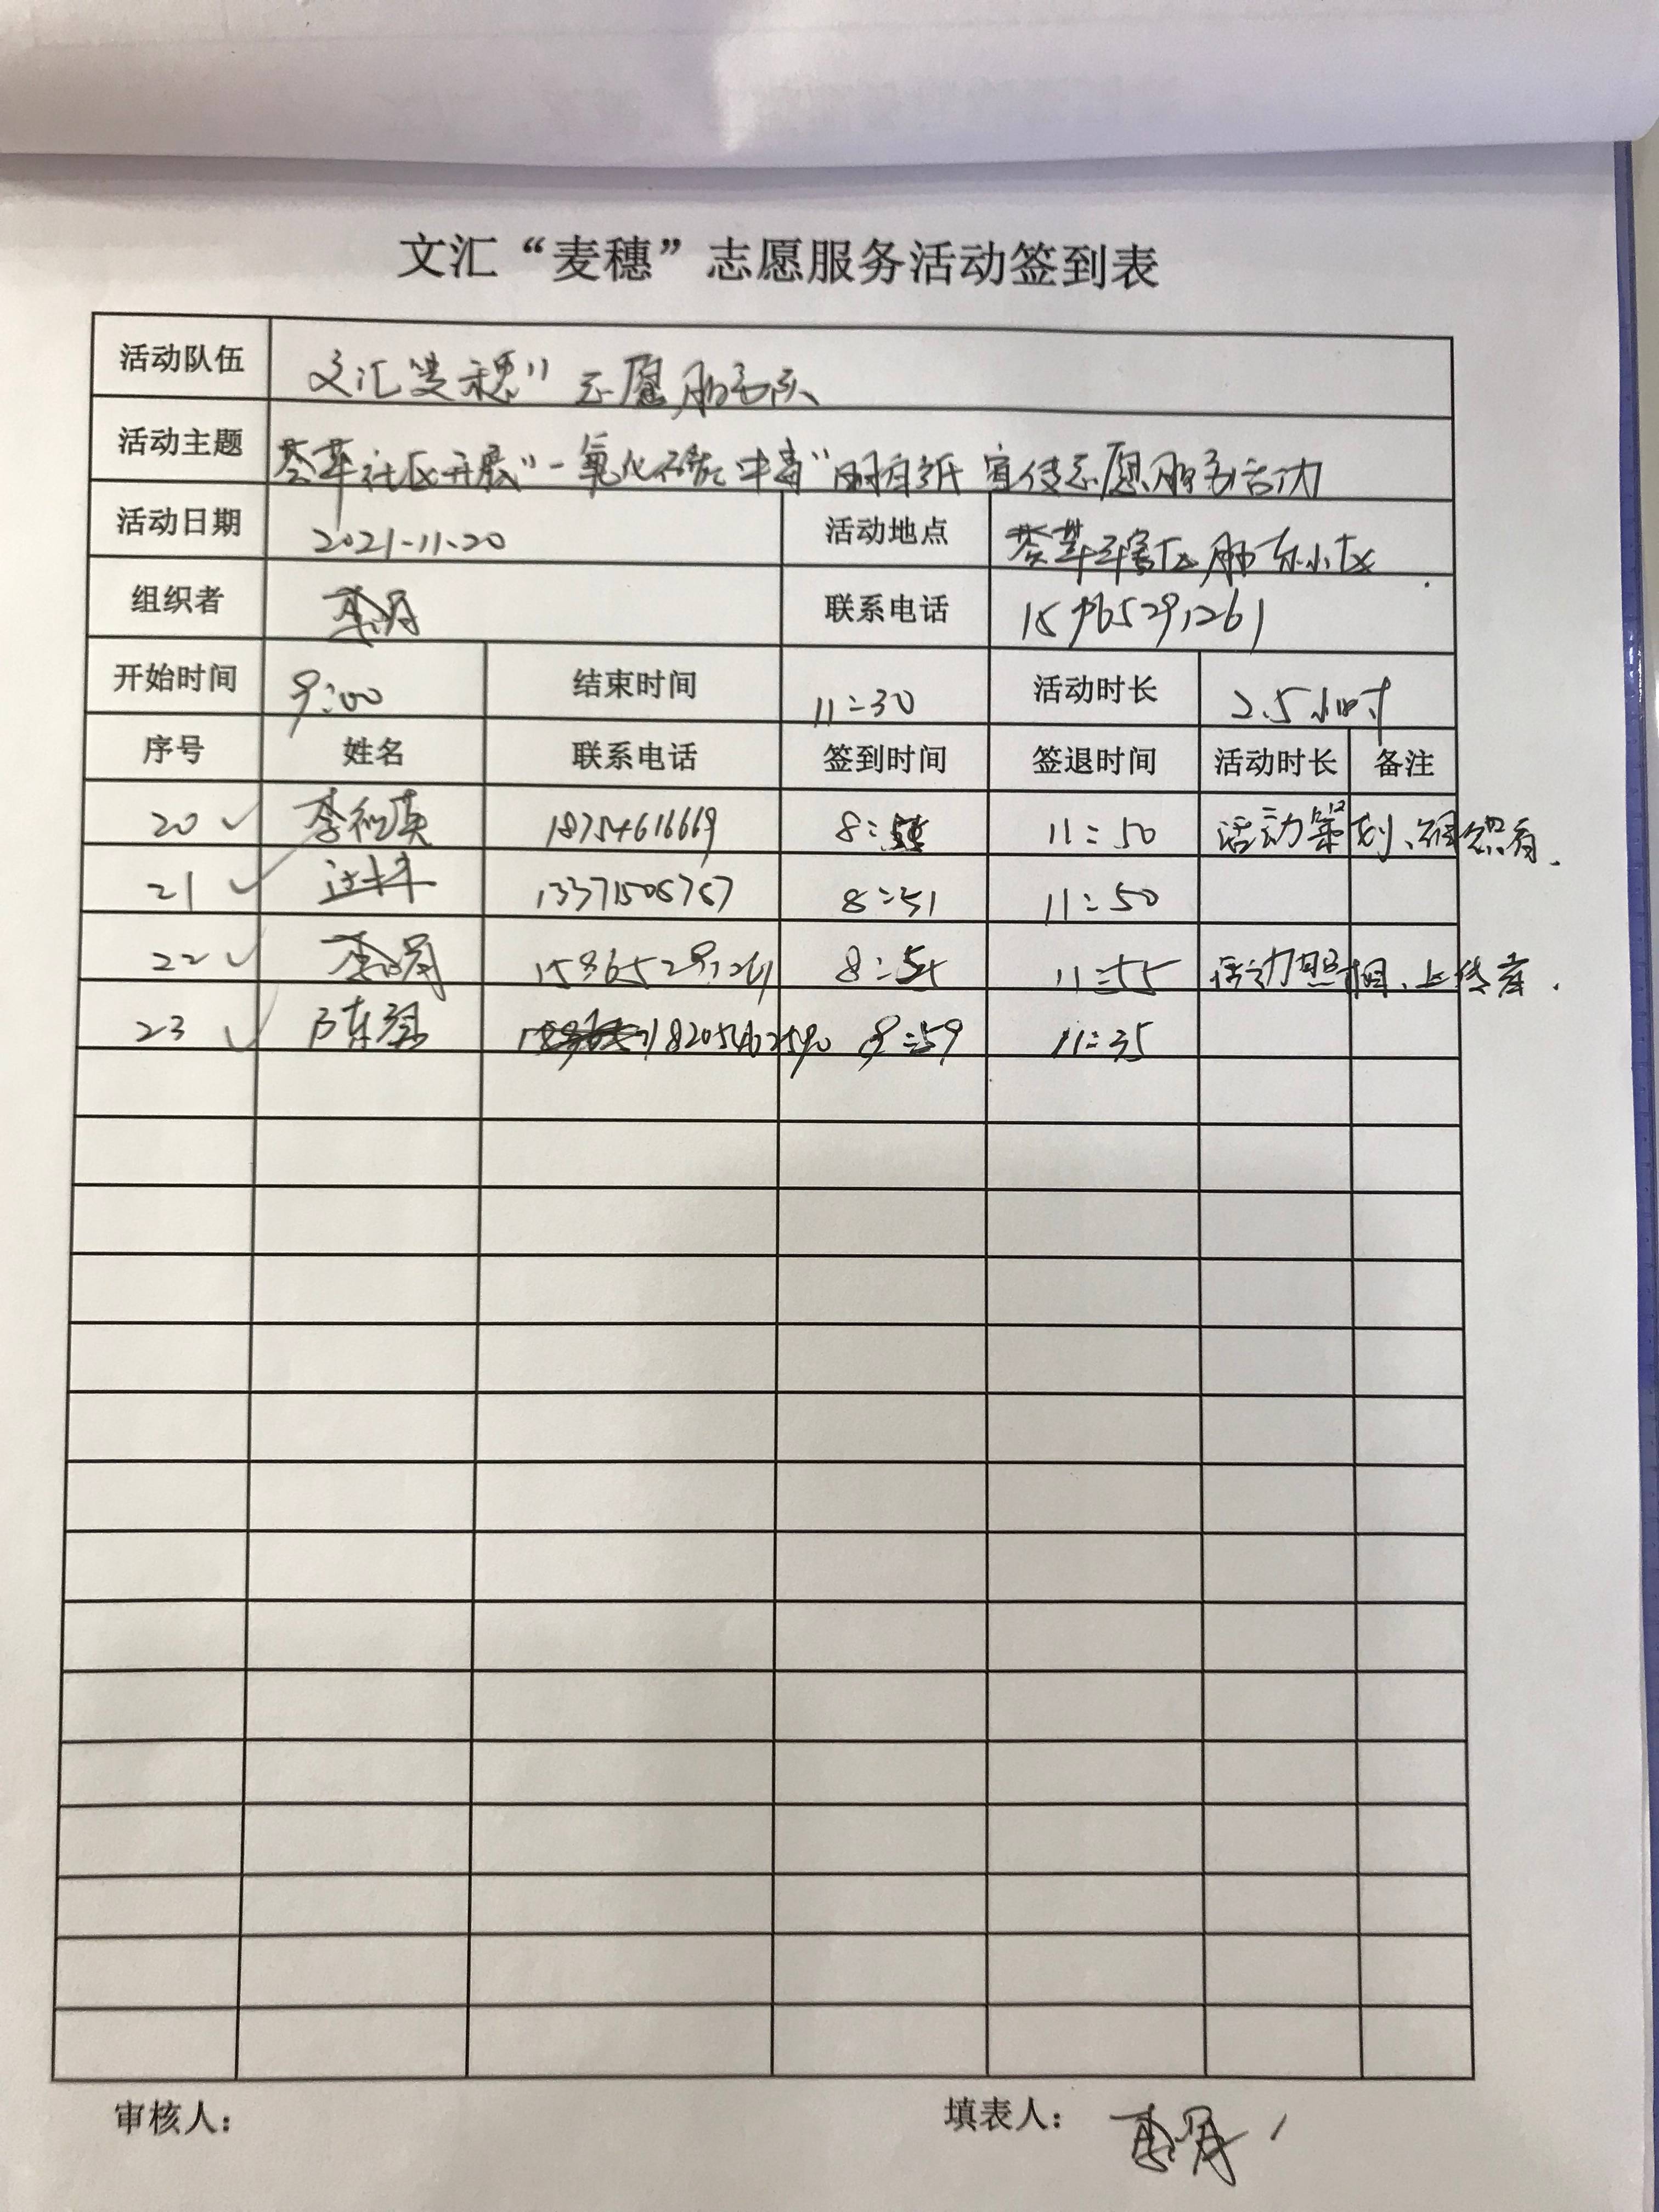 文汇“麦穗”志愿服务活动签到表
活动队伍 文汇“麦穗”志愿服务队
活动主题 荟萃社区开展“一氧化碳中毒”明白纸宣传志愿服务活动
活动日期 2021.11.20 活动地点 荟萃 小区
组织者 李月 联系电话 15865291261
开始时间 9:00 结束时间 11:30 活动时长 2.5小时
序号 姓名 联系电话 签到时间 签退时间 活动时长 备注
20 李 英 18754616669 8: 11:50 活动策划、组织者.
21 13371505767 8:51 11:50
22 李月 15865291261 8: 11:55 活动照相、上传者.
23 陈 18205462590 8:59 11:35
审核人： 填表人： 李月